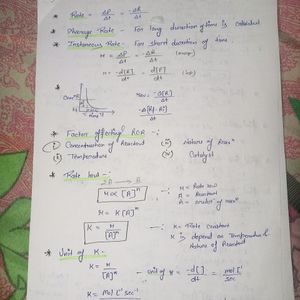 * Rate = ΔP/Δt = -ΔR/Δt
* Average Rate - For long duration of time is Calculated
* Instaneous Rate - For short duration of time.
r = ΔP/Δt = -ΔR/Δt
r = -d[R]/dt = d[P]/dt
Time
* Factors affecting ROR -:
(i) Concentration of Reactant (iii) Nature of Reacn
(ii) Temperature (iv) Catalyst
* Rate law -:
r ∝ [A]^n -: r = Rate
A = Reactant
n = order of reacn
r = K[A]^n
K = r/[A]^n -: K = Rate constant
K is depend on Temperature & Nature of Reactant
* Unit of K -
K = r/[A]^n - Unit of r = -d[]/dt = mol L^-1/sec
K = mol L^-1 sec^-1